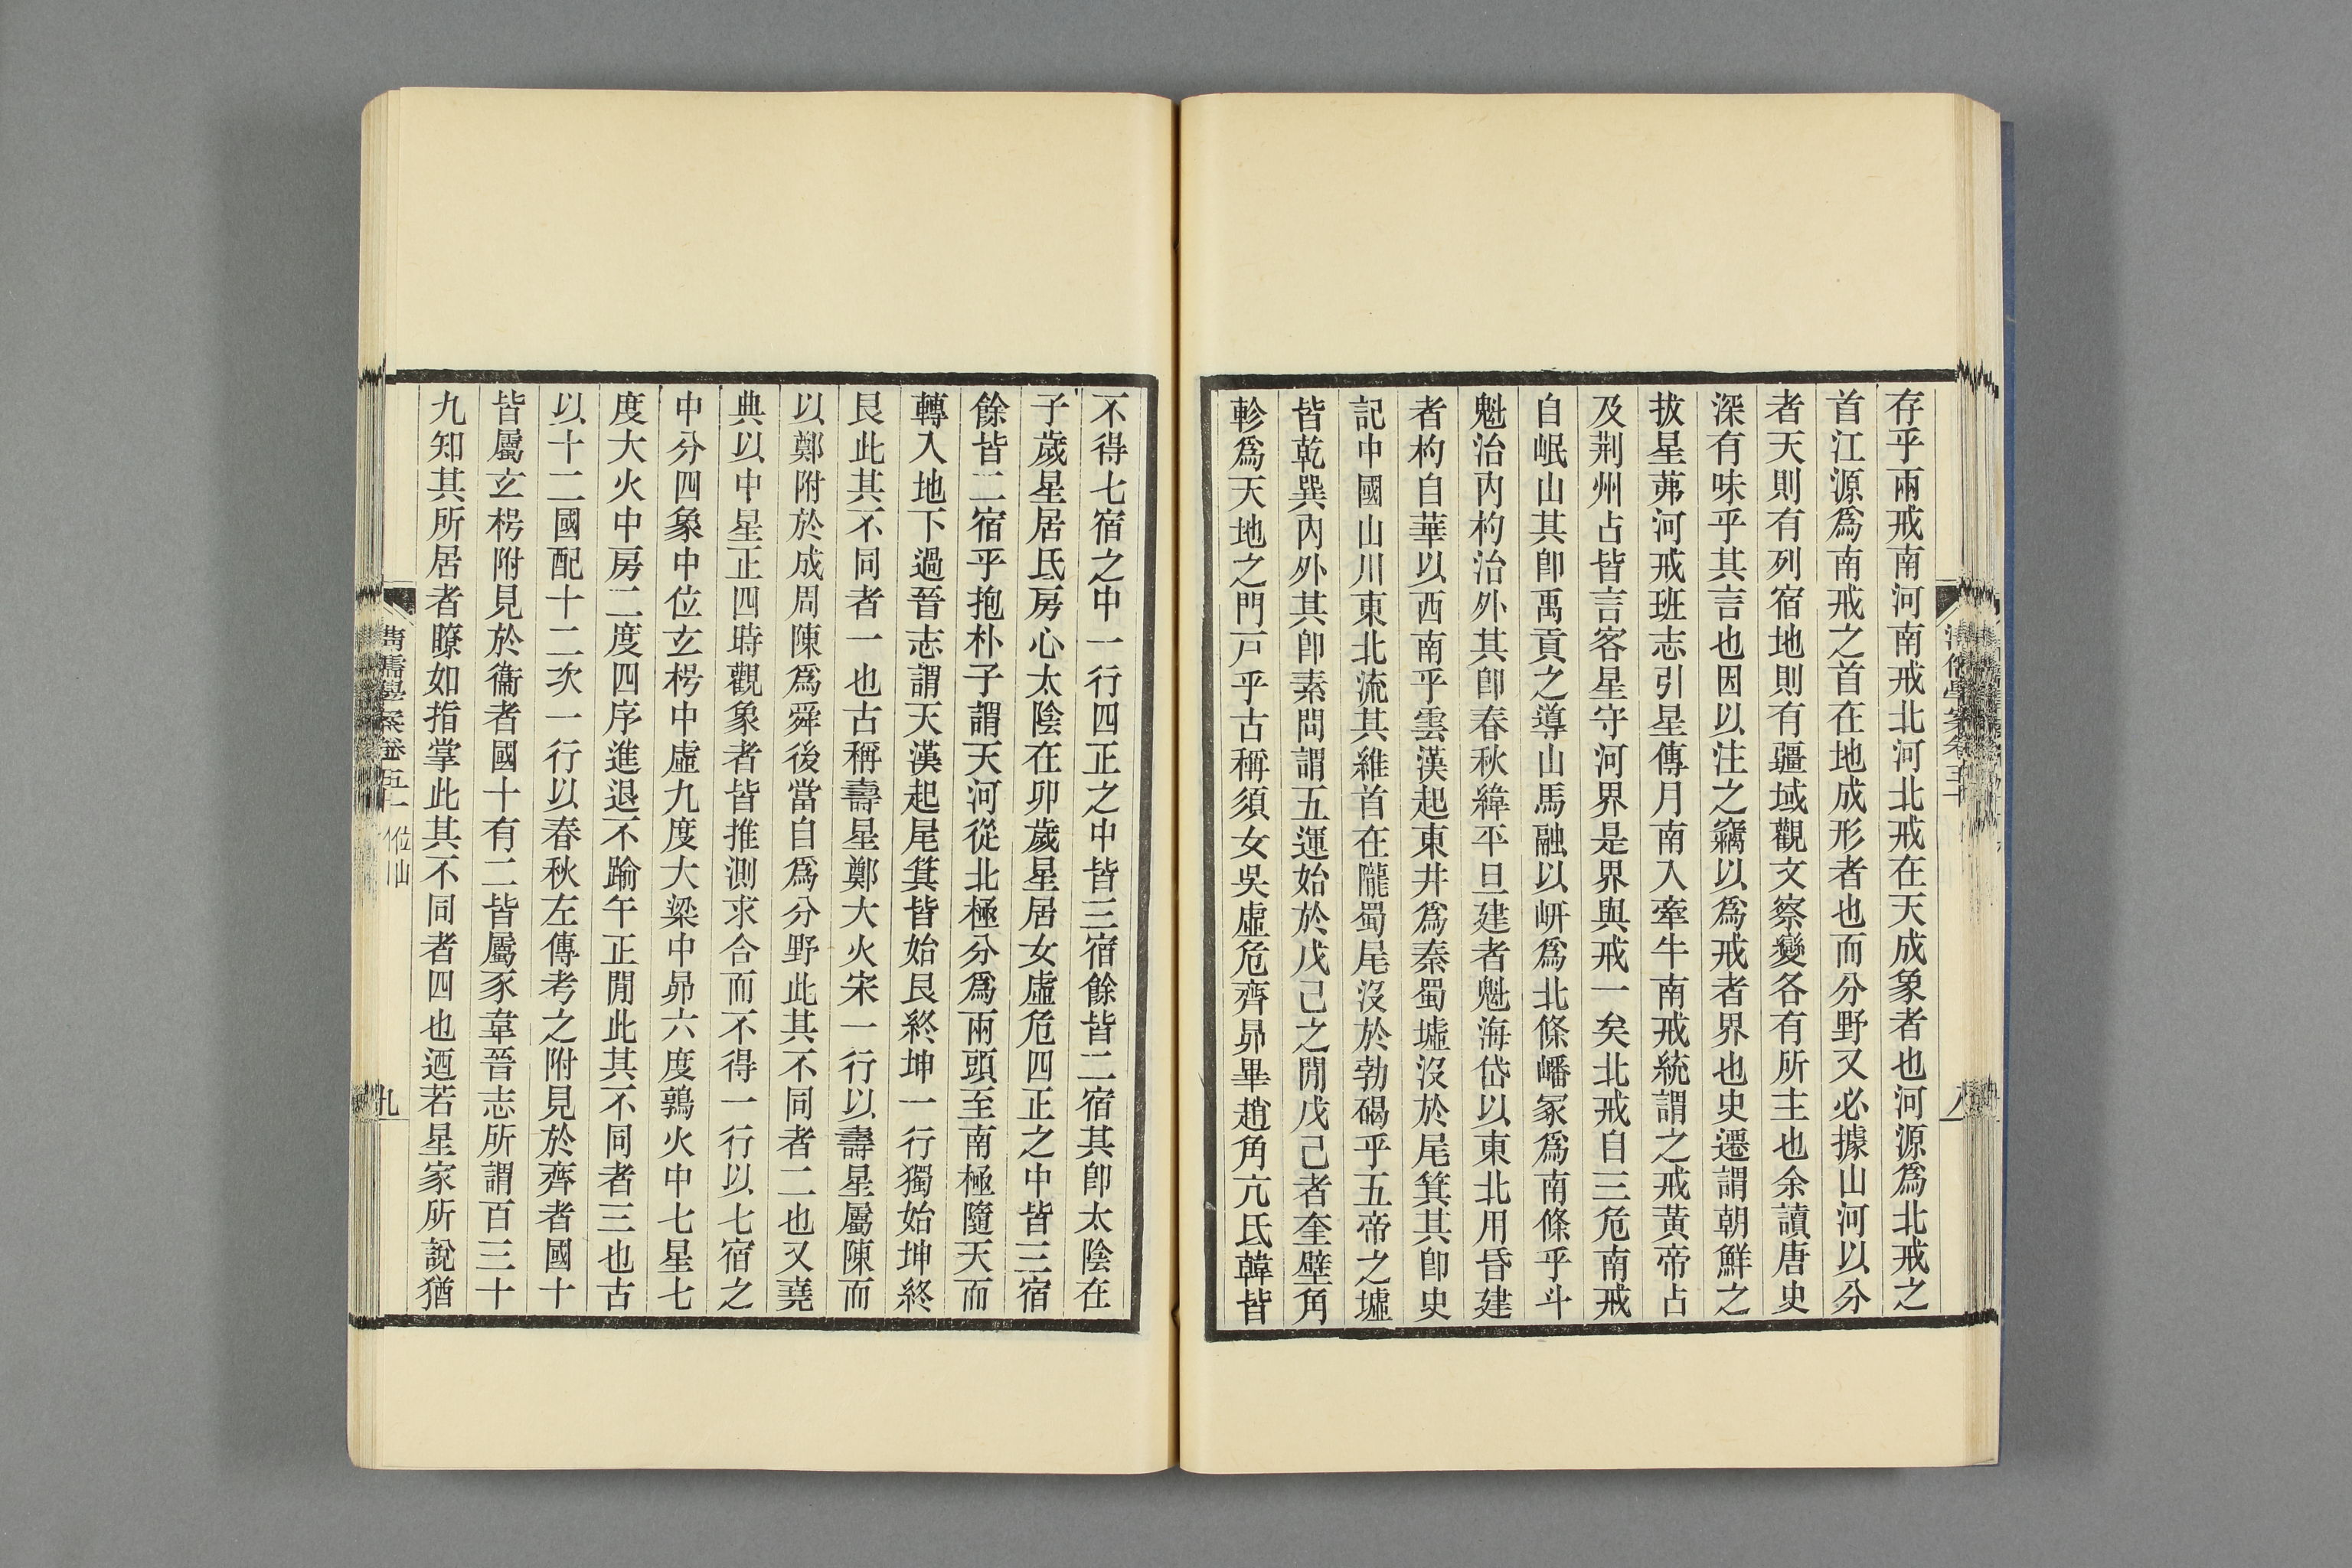 存乎兩戒南河南戒北河北戒在天成象者也河源爲北戒之
首江源爲南戒之首在地成形者也而分野又必據山河以分
者天則有列宿地則有疆域觀文察變各有所主也余讀唐史
深有味乎其言也因以注之竊以爲戒者界也史遷謂朝鮮之
拔星茀河戒班志引星傳月南入牽牛南戒統謂之戒黃帝占
及荆州占皆言客星守河界是界與戒一矣北戒自三危南戒
自岷山其卽禹貢之導山馬融以岍爲北條嶓冢爲南條乎斗
魁治內杓治外其卽春秋緯平旦建者魁海岱以東北用昏建
者杓自華以西南乎雲漢起東井爲秦蜀墟沒於尾箕其卽史
記中國山川東北流其維首在隴蜀尾沒於勃碣乎五帝之墟
皆乾巽內外其卽素問謂五運始於戊己之閒戊己者奎壁角
軫爲天地之門戸乎古稱須女吳虛危齊昴畢趙角亢氐韓皆
不得七宿之中一行四正之中皆三宿餘皆二宿其卽太陰在
子歲星居氐房心太陰在卯歲星居女虛危四正之中皆三宿
餘皆二宿乎抱朴子謂天河從北極分爲兩頭至南極隨天而
轉入地下過晉志謂天漢起尾箕皆始艮終坤一行獨始坤終
艮此其不同者一也古稱壽星鄭大火宋一行以壽星屬陳而
以鄭附於成周陳爲舜後當自爲分野此其不同者二也又堯
典以中星正四時觀象者皆推測求合而不得一行以七宿之
中分四象中位玄枵中虛九度大梁中昴六度鶉火中七星七
度大火中房二度四序進退不踰午正閒此其不同者三也古
以十二國配十二次一行以春秋左傳考之附見於齊者國十
皆屬玄枵附見於衞者國十有二皆屬豕韋晉志所謂百三十
九知其所居者瞭如指掌此其不同者四也迺若星家所說猶
九